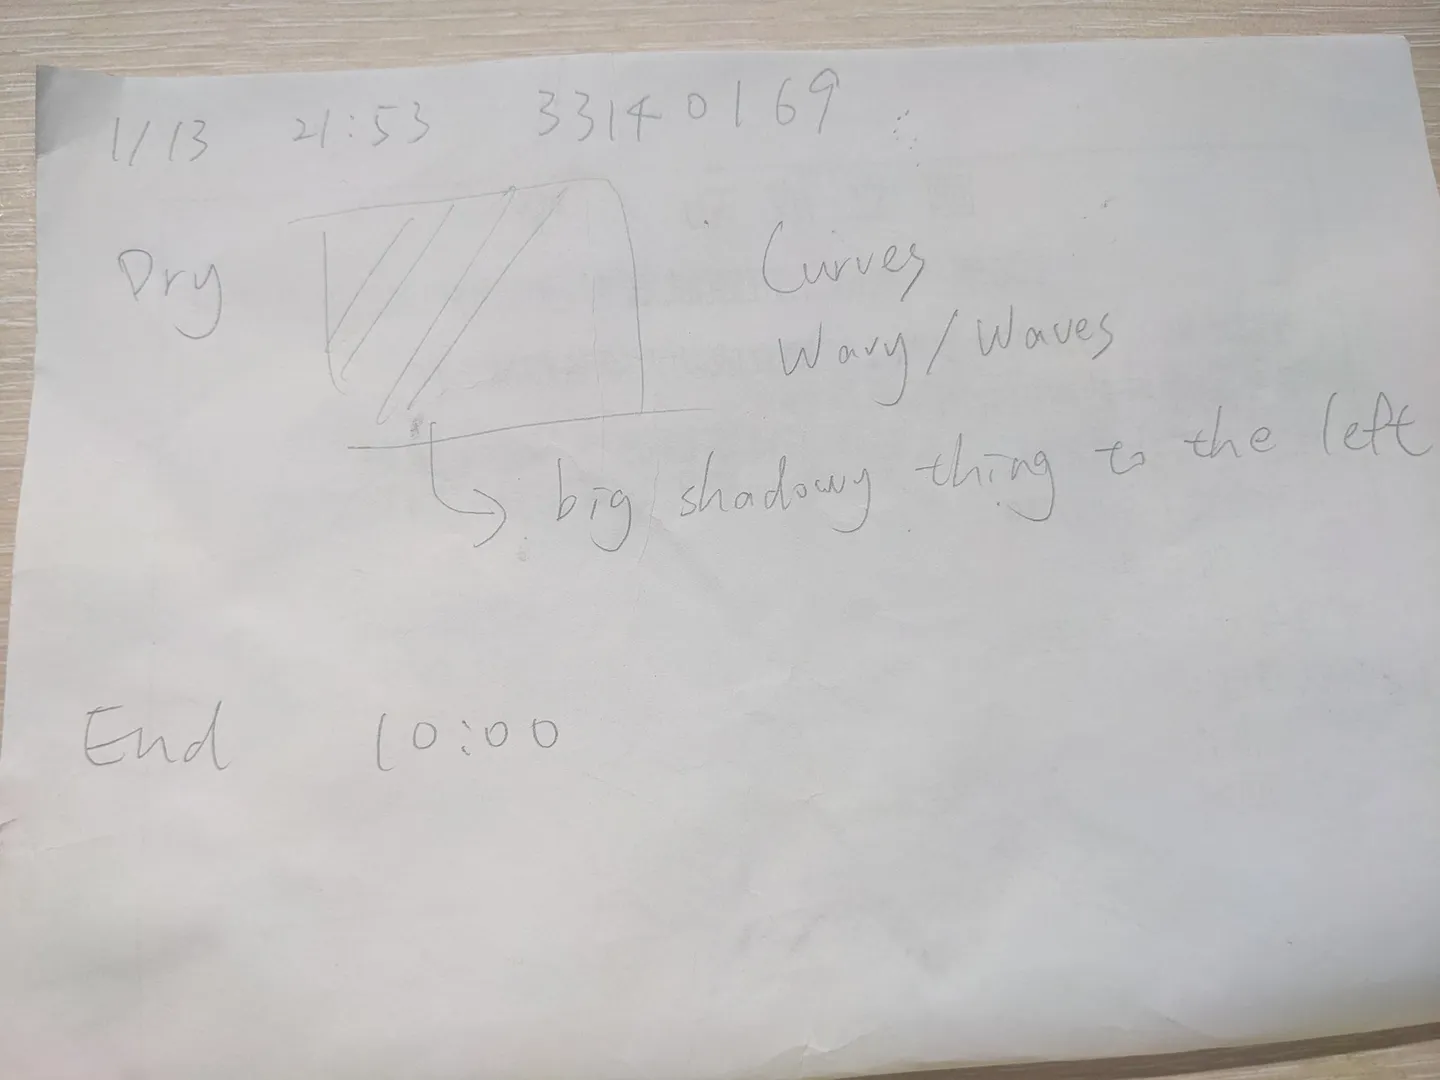 1/13 21:53 33140169
Dry
Curves
Wavy/Waves
big shadowy thing to the left
End 10:00